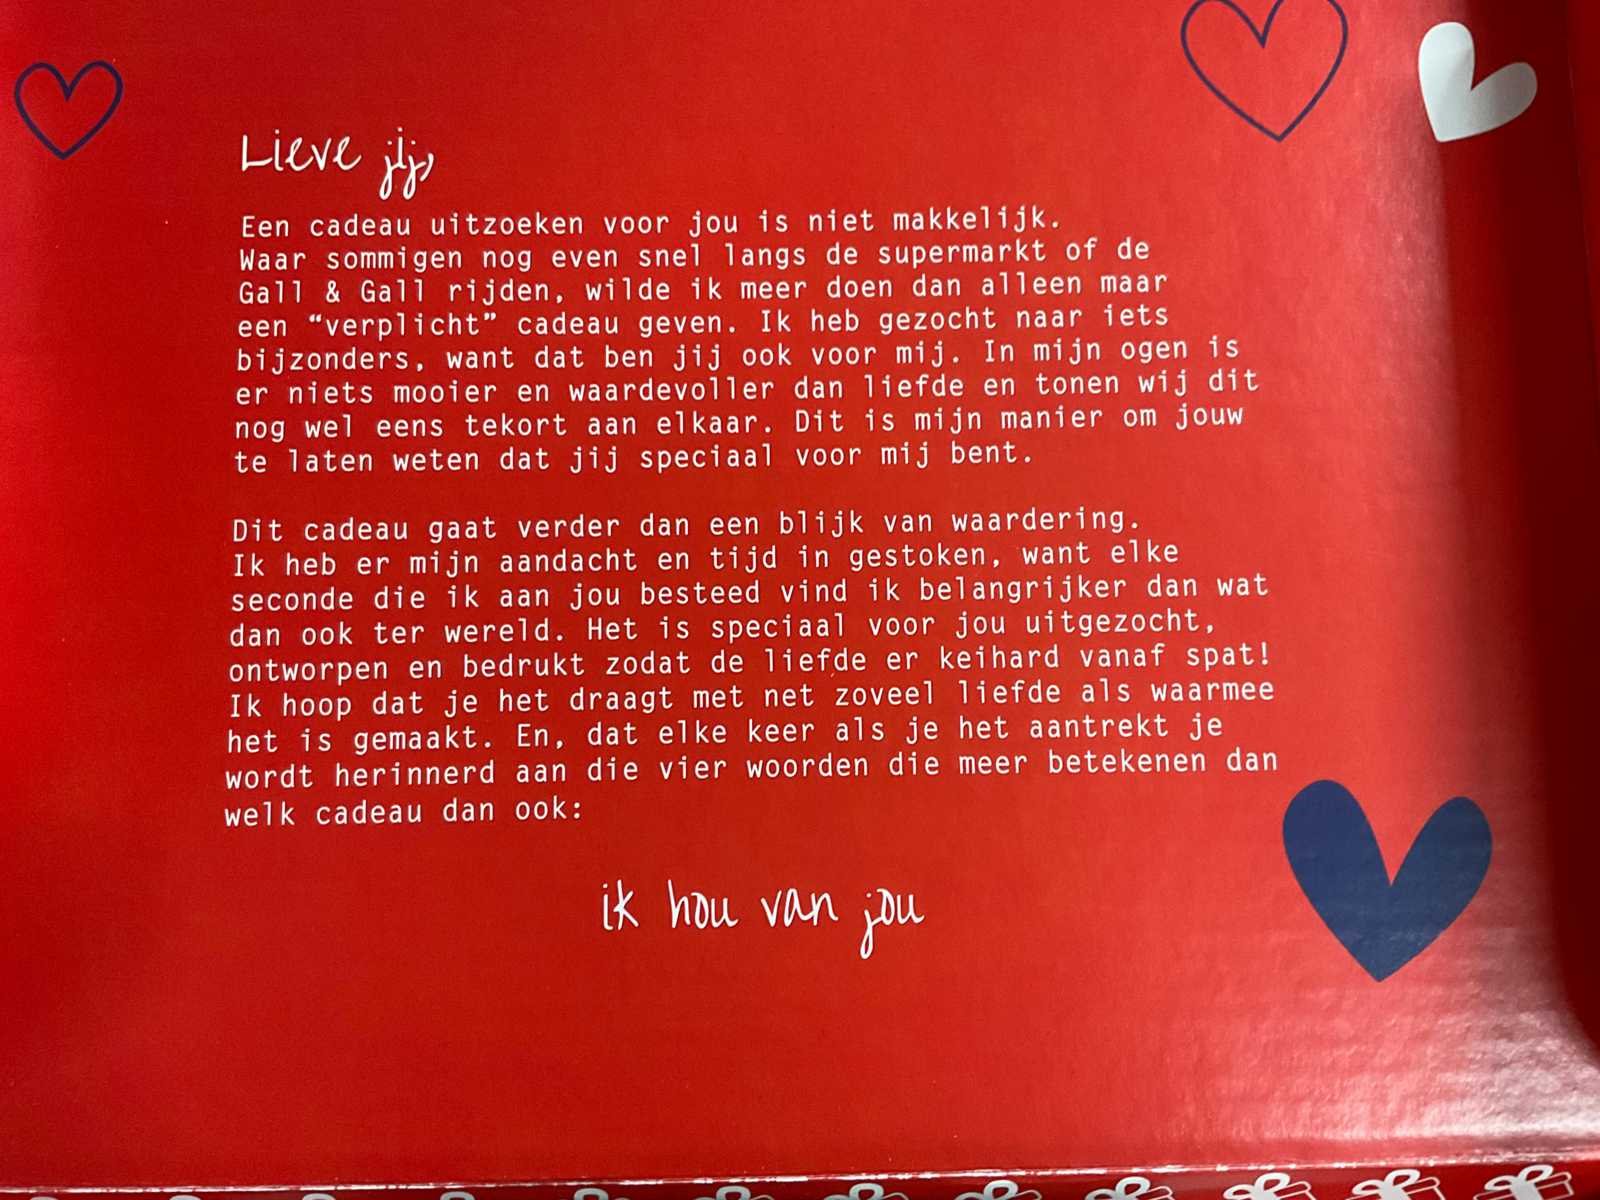 Lieve jij,
Een cadeau uitzoeken voor jou is niet makkelijk.
Waar sommigen nog even snel langs de supermarkt of de
Gall & Gall rijden, wilde ik meer doen dan alleen maar
een “verplicht” cadeau geven. Ik heb gezocht naar iets
bijzonders, want dat ben jij ook voor mij. In mijn ogen is
er niets mooier en waardevoller dan liefde en tonen wij dit
nog wel eens tekort aan elkaar. Dit is mijn manier om jouw
te laten weten dat jij speciaal voor mij bent.
Dit cadeau gaat verder dan een blijk van waardering.
Ik heb er mijn aandacht en tijd in gestoken, want elke
seconde die ik aan jou besteed vind ik belangrijker dan wat
dan ook ter wereld. Het is speciaal voor jou uitgezocht,
ontworpen en bedrukt zodat de liefde er keihard vanaf spat!
Ik hoop dat je het draagt met net zoveel liefde als waarmee
het is gemaakt. En, dat elke keer als je het aantrekt je
wordt herinnerd aan die vier woorden die meer betekenen dan
welk cadeau dan ook:
ik hou van jou